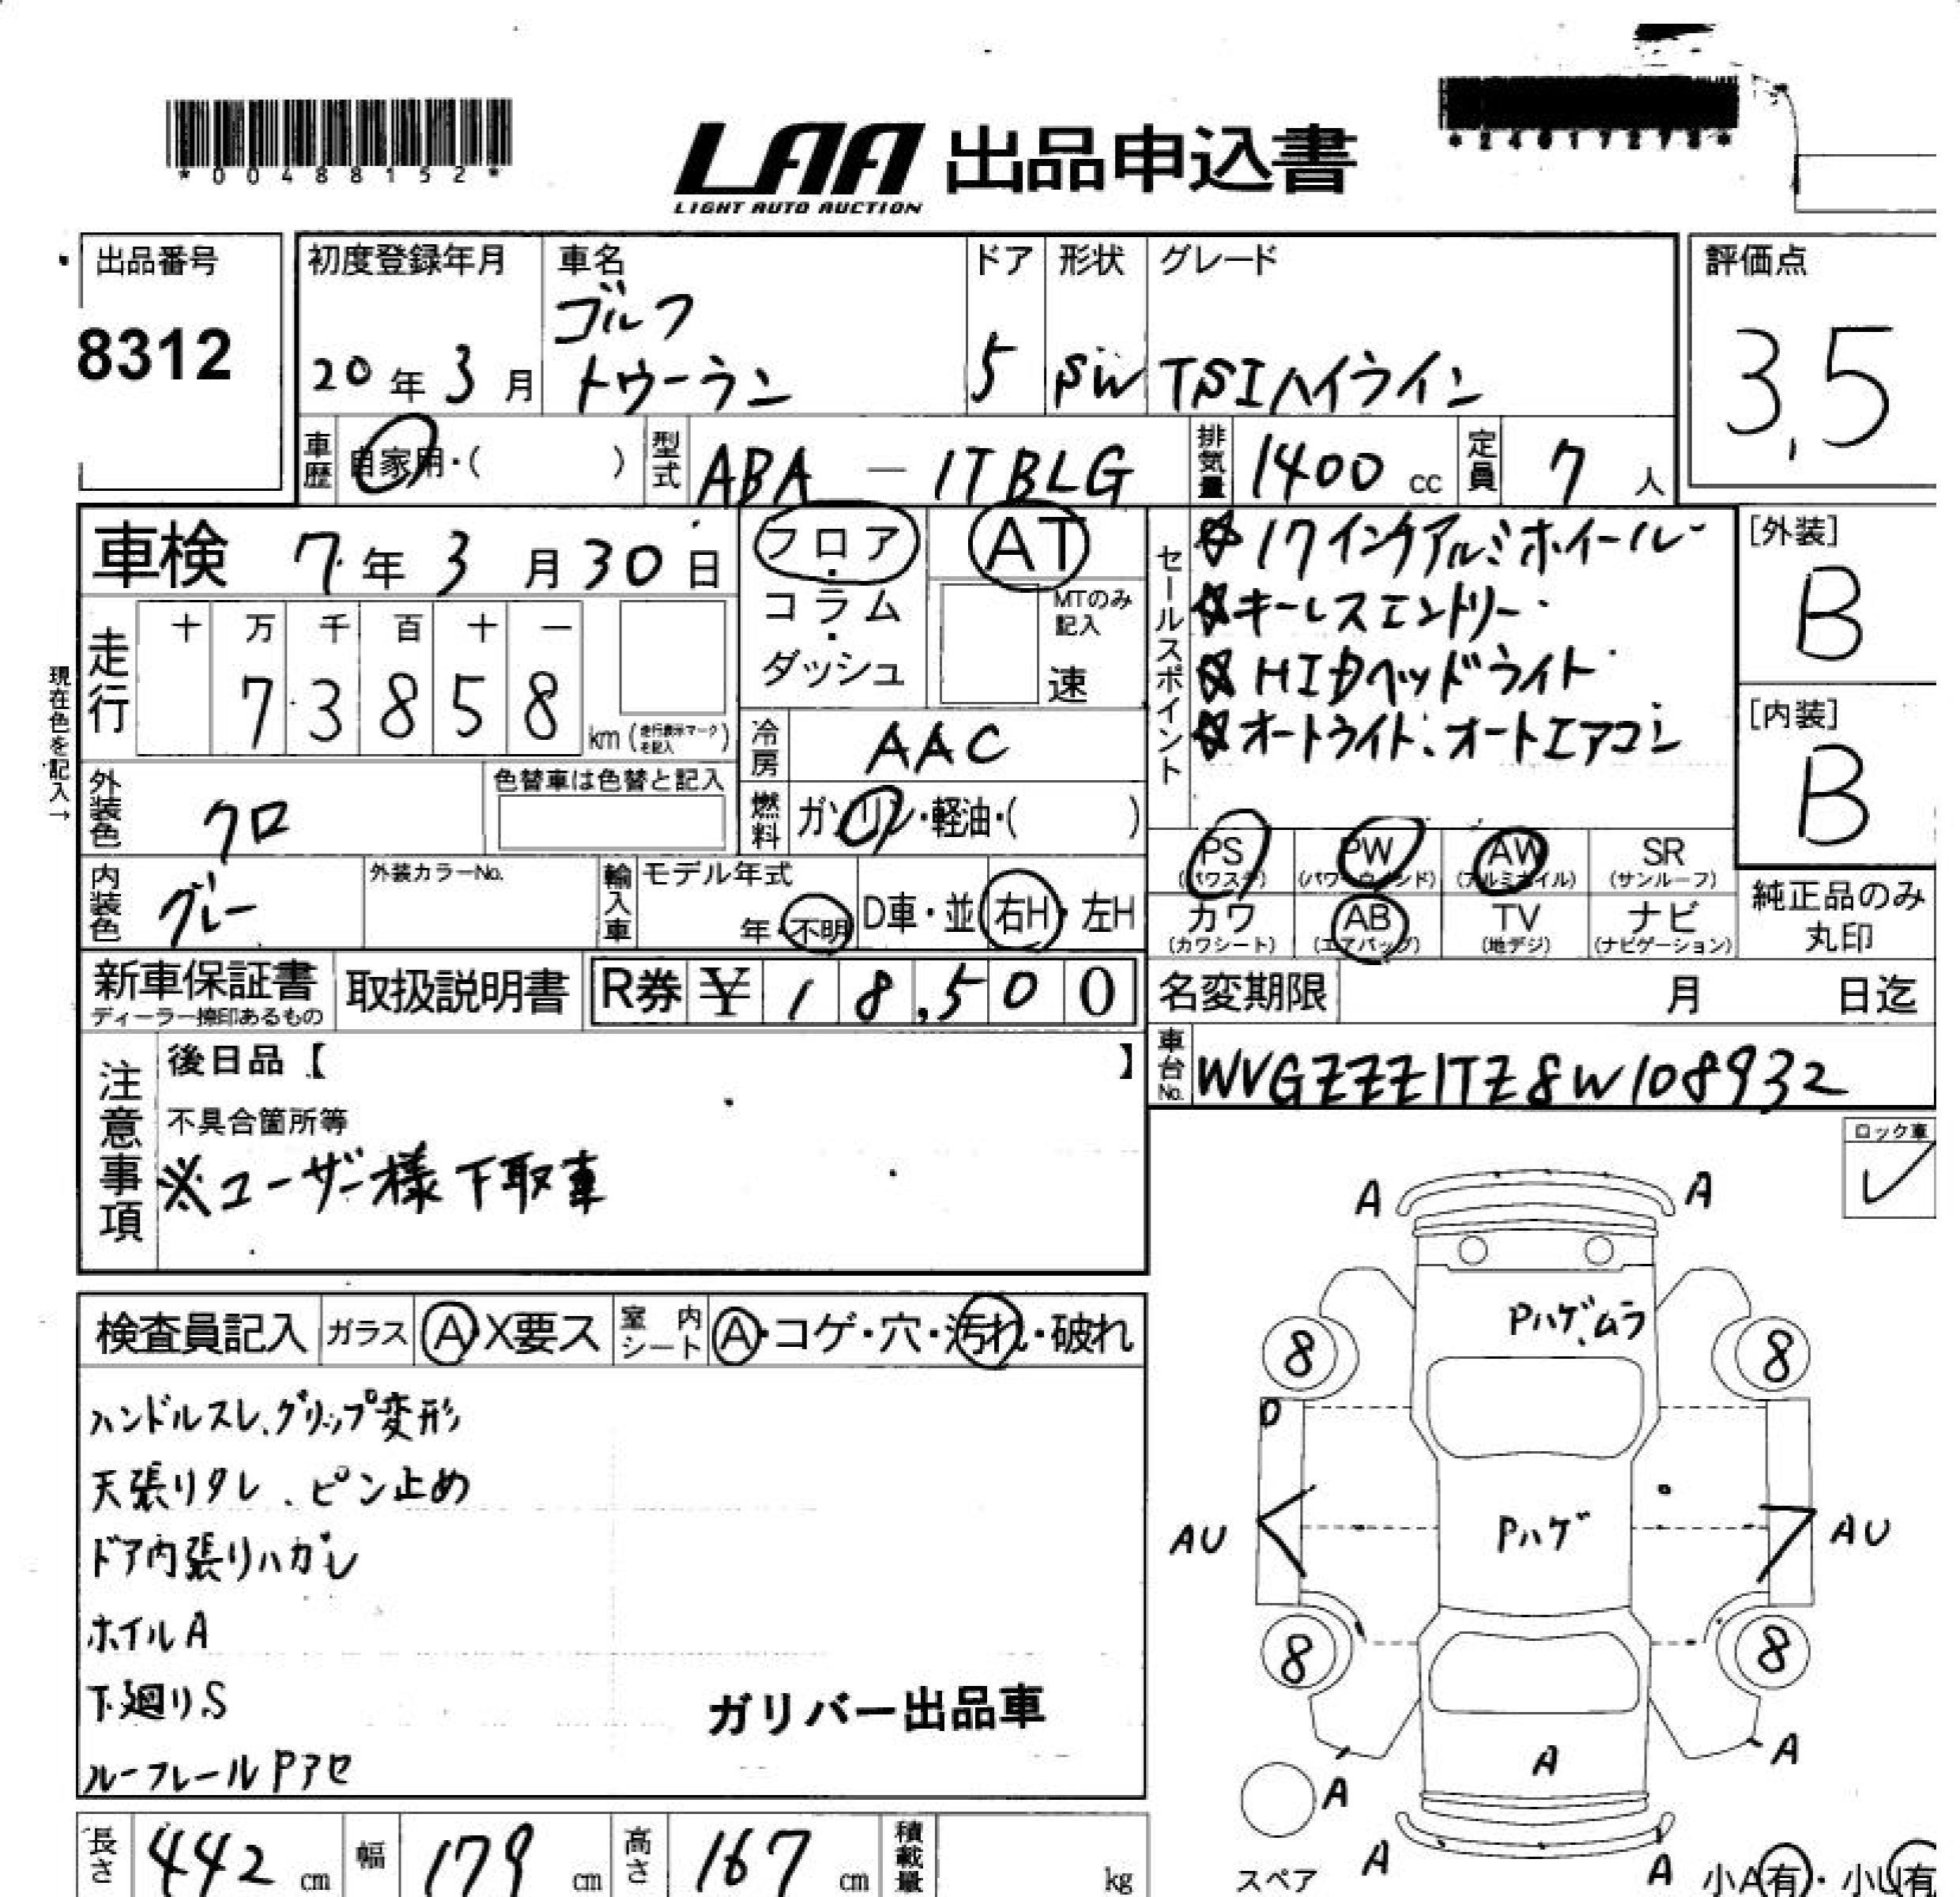 *00488152*
LAA 出品申込書
LIGHT AUTO AUCTION
出品番号
8312
初度登録年月
20年3月
車名
ゴルフ
トゥーラン
ドア
5
形状
SW
グレード
TSIハイライン
評価点
3,5
車歴
自家用・( )
型式
ABA-1TBLG
排気量
1400cc
定員
7人
車検 7年3月30日
フロア・コラム・ダッシュ
AT
MTのみ記入
速
セールスポイント
☆17インチアルミホイール
☆キーレスエントリー
☆HIDヘッドライト
☆オートライト、オートエアコン
[外装]
B
[内装]
B
現在色を記入→
走行
十万千百十一
73858
km(走行表示マークを記入)
冷房
AAC
燃料
ガソリン・軽油・( )
外装色
クロ
色替車は色替と記入
内装色
グレー
外装カラーNo.
輸入車
モデル年式
年・不明
D車・並 右H・左H
PS
(パワステ)
PW
(パワーウィンド)
AW
(アルミホイル)
SR
(サンルーフ)
カワ
(カワシート)
AB
(エアバッグ)
TV
(地デジ)
ナビ
(ナビゲーション)
純正品のみ
丸印
新車保証書
ディーラー捺印あるもの
取扱説明書
R券 ¥18,500
名変期限
月 日迄
車台No.
WVGZZZ1TZ8W108932
注意事項
後日品【 】
不具合箇所等
※ユーザー様下取車
ロック車
✓
検査員記入
ガラス
A・X要ス
室内シート
A・コゲ・穴・汚れ・破れ
ハンドルスレ、グリップ変形
天張りタレ、ピン止め
ドア内張りハガレ
ホイルA
下廻りS
ルーフレールPアセ
ガリバー出品車
A
A
Pハゲ、ムラ
8
8
AU
Pハゲ
AU
8
8
A
A
A
A
A
スペア
小A有・小U有
長さ
442cm
幅
179cm
高さ
167cm
積載量
kg